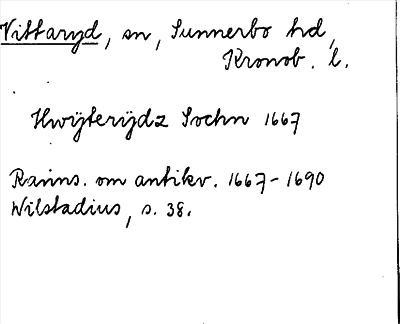 Vittaryd, sn, Sunnerbo hd,
Kronob. l.
Hwÿterÿdz Sochn 1667
Ranns. om antikv. 1667-1690
Wilstadius, s. 38.